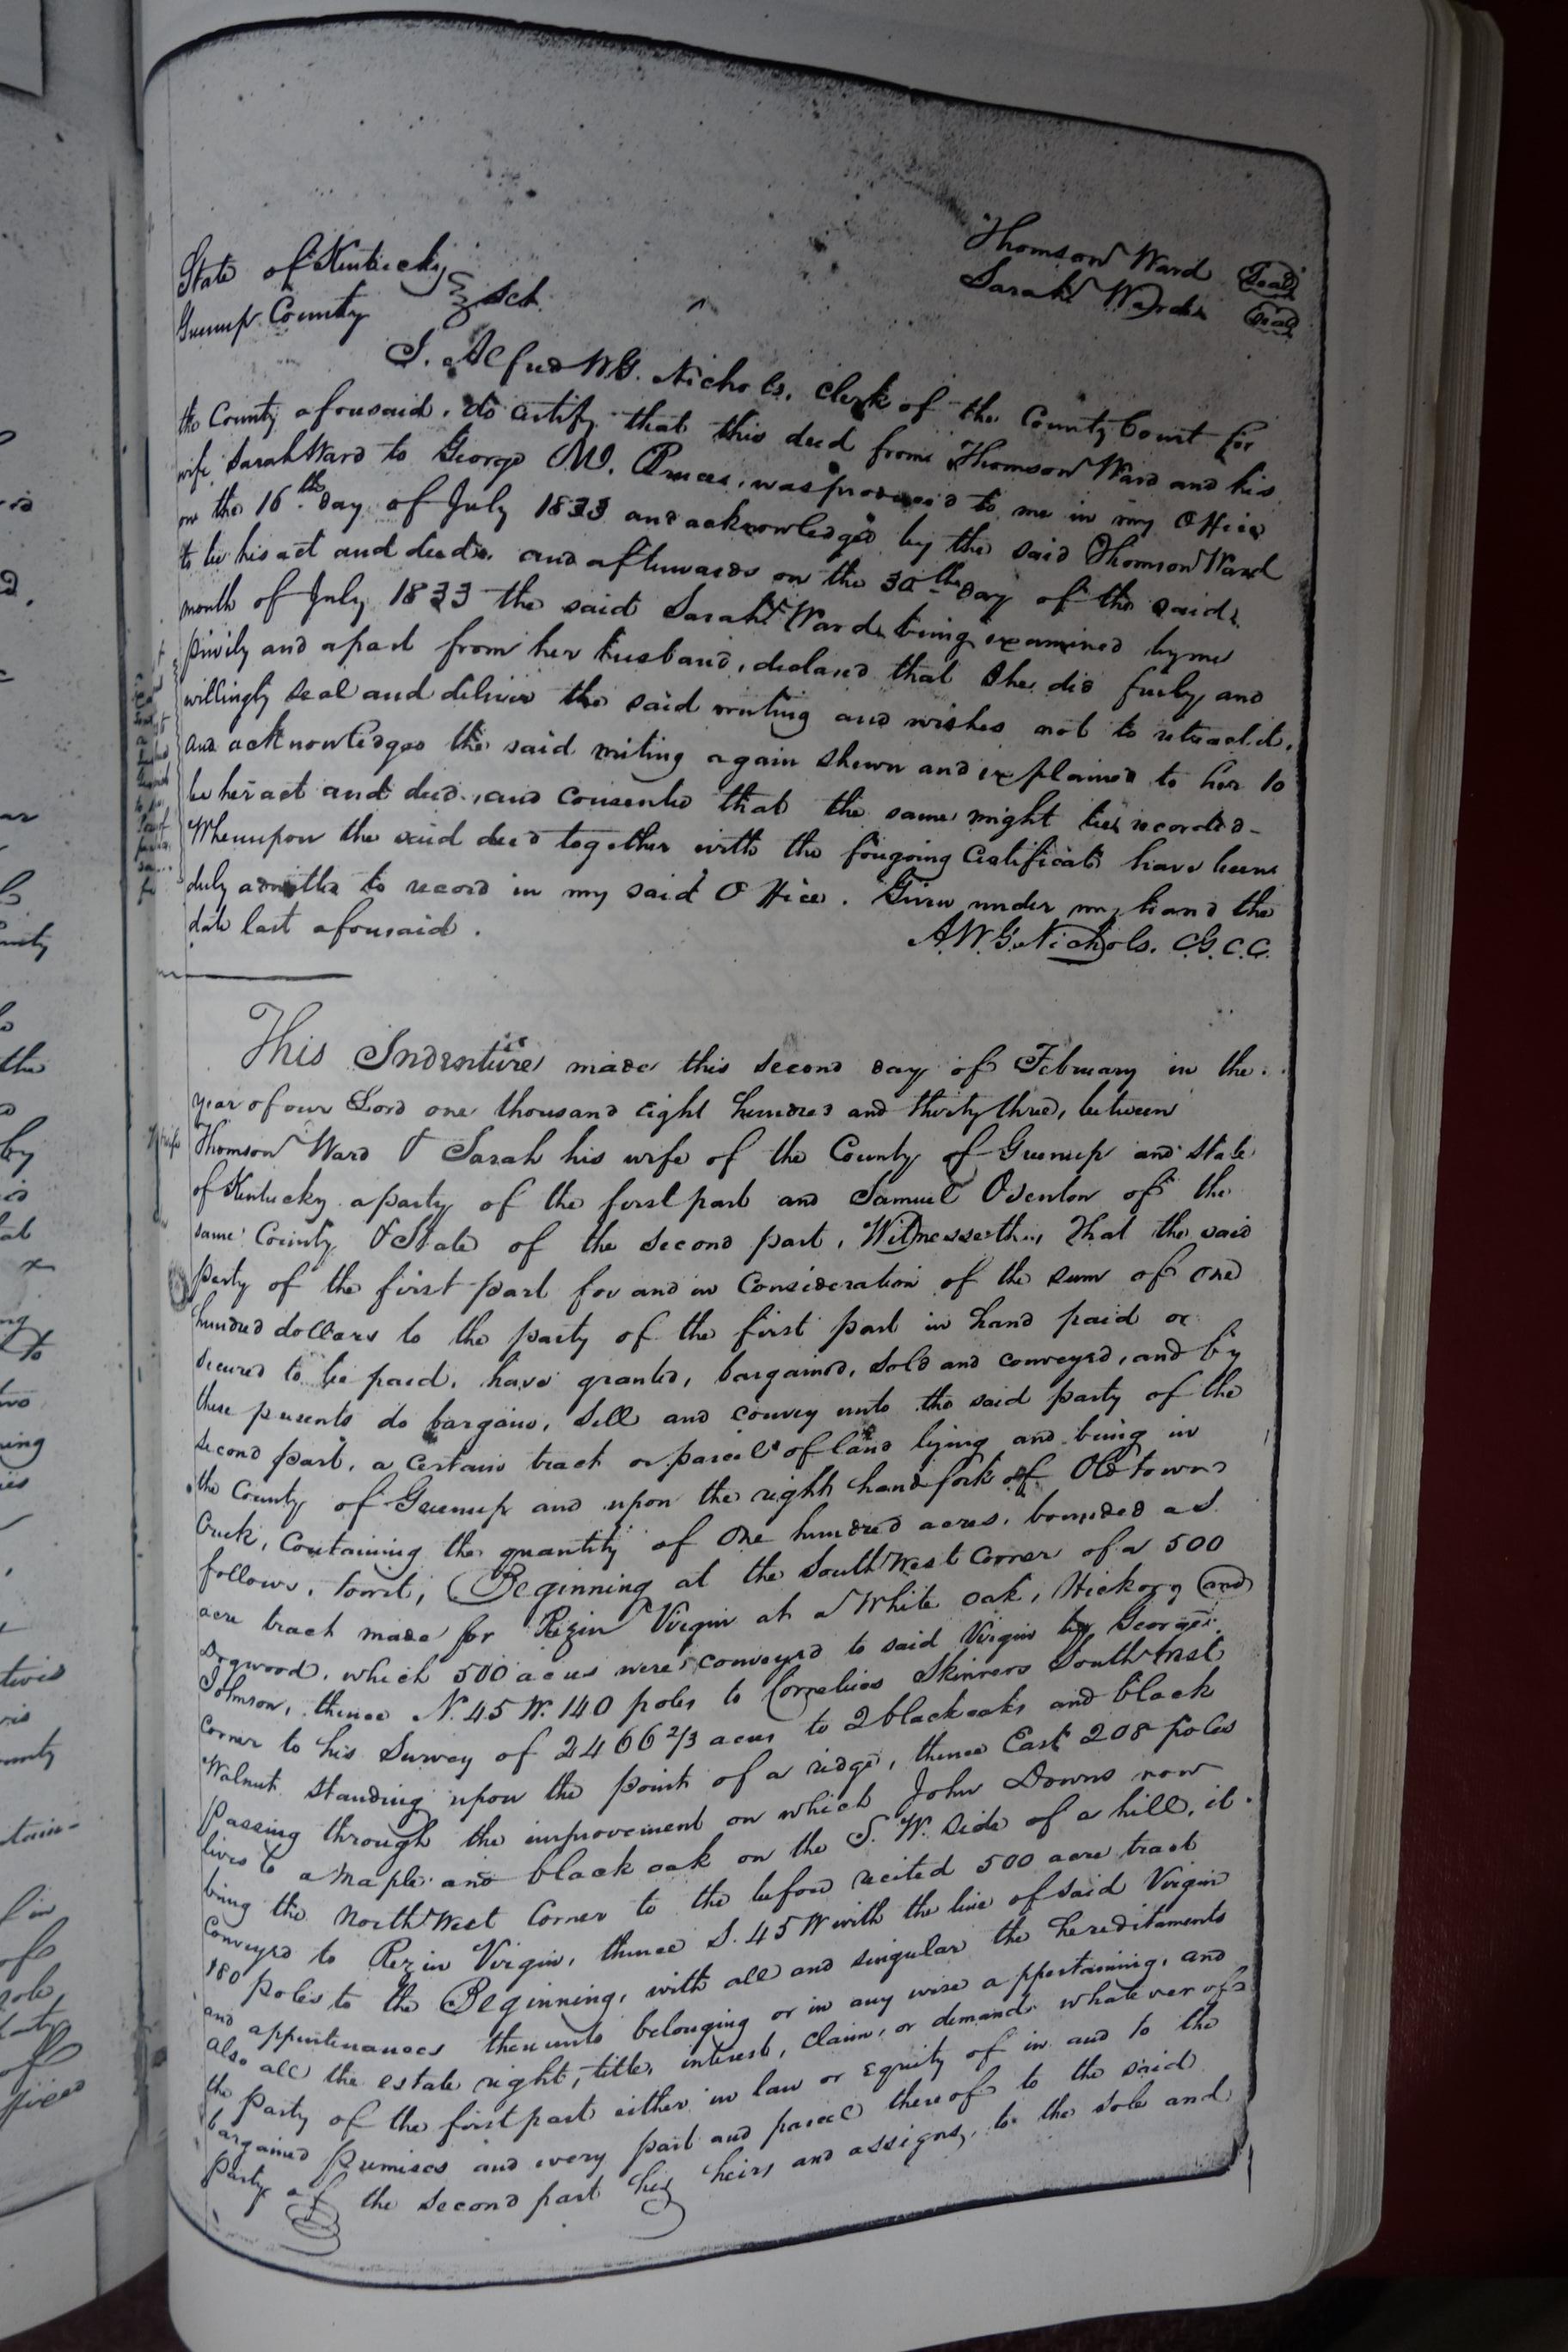 Thomson Ward Seal
Sarah Ward Seal
State of Kentucky
Greenup County Sct.
I. Alfred W.G. Nichols, clerk of the County Court for
the County aforesaid, do certify that this deed from Thomson Ward and his
wife Sarah Ward to George M. was produced to me in my Office
on the 16th day of July 1833 and acknowledged by the said Thomson Ward
to be his act and deed, and afterwards on the 30th day of the said
month of July 1833 the said Sarah Ward being examined by me
privily and apart from her husband, declared that She did freely and
willingly seal and deliver the said writing and wishes not to retract it,
and acknowledges the said writing again shewn and explained to her to
be her act and deed, and consented that the same might be recorded-
Whereupon the said deed together with the foregoing Certificate have been
duly admitted to record in my said Office. Given under my hand the
date last aforesaid.
A.W.G. Nichols. C.G.C.C.
This Indenture made this second day of February in the
year of our Lord one thousand eight hundred and thirty three, between
Thomson Ward & Sarah his wife of the County of Greenup and state
of Kentucky a party of the first part and Samuel Osenton of the
same County & State of the second part, Witnesseth, That the said
party of the first part for and in Consideration of the sum of one
hundred dollars to the party of the first part in hand paid or
secured to be paid, have granted, bargained, sold and conveyed, and by
these presents do bargain, sell and convey unto the said party of the
second part, a certain tract or parcel of land lying and being in
the County of Greenup and upon the right hand fork of Oldtown
Creek, Containing the quantity of One hundred acres, bounded as
follows, towit, Beginning at the South West Corner of a 500
acre tract made for Rezin Virgin at a White oak, Hickory and
Dogwood, which 500 acres were conveyed to said Virgin by George
Johnson, thence N. 45 W. 140 poles to Cornelius Skinners South East
corner to his Survey of 2466 2/3 acres to 2 black oaks and black
Walnut standing upon the point of a ridge, thence East 208 poles
Passing through the improvement on which John Downs now
lives to a Maple and black oak on the S. W. side of a hill, it
being the North West Corner to the before recited 500 acre tract
Conveyed to Rezin Virgin, thence S. 45 W with the line of said Virgin
180 poles to the Beginning, with all and singular the hereditaments
and appurtenances thereunto belonging or in any wise appertaining, and
also all the estate right, title, interest, claim, or demand whatever of
the party of the first part either in law or equity of in and to the
bargained premises and every part and parcel thereof to the said
Party of the second part his heirs and assigns, to the sole and